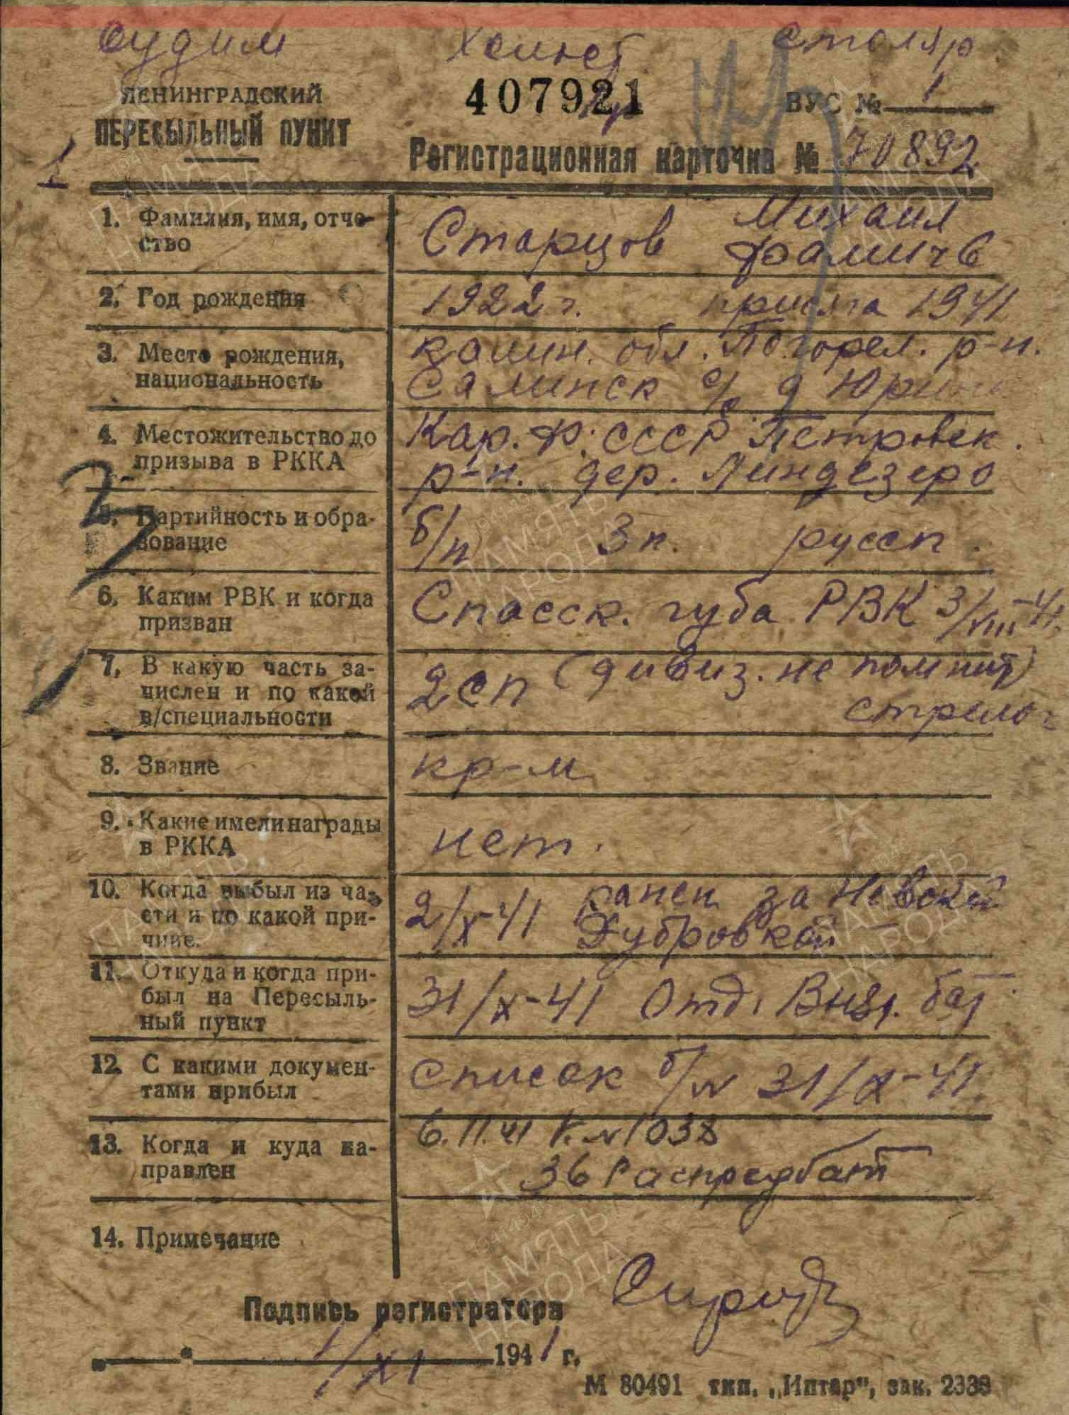 судим холост столяр
ЛЕНИНГРАДСКИЙ
ПЕРЕСЫЛЬНЫЙ ПУНКТ
407921
ВУС № 1
Регистрационная карточка № 70892
1. Фамилия, имя, отче-
ство
Старцов Михаил
Фамичъ
2. Год рождения
1922 г. присяга 1941
3. Место рождения,
национальность
калин. обл. Погорел. р-н.
Салинск с/с д Юрино
4. Местожительство до
призыва в РККА
Кар. Ф. СССР Петровск.
р-н. дер. Линдезеро
5. Партийность и обра-
зование
б/п 3 к. русск.
6. Каким РВК и когда
призван
Спасск. губа РВК 3/VIII-41.
7. В какую часть за-
числен и по какой
в/специальности
2 сп (дивиз. не помнит)
стрелок
8. Звание
кр-м
9. Какие имели награды
в РККА
нет.
10. Когда выбыл из ча-
сти и по какой при-
чине.
2/X-41 ранен за Невской
Дубровкой
11. Откуда и когда при-
был на Пересыль-
ный пункт
31/X-41 Отд. Выз. бат.
12. С какими докумен-
тами прибыл
список б/N 31/X-41.
13. Когда и куда на-
правлен
6.11.41 к. N 1038
36 Распредбат
14. Примечание
Подпись регистратора
1/XI 1941 г.
М 80491 тип. „Интар", зак. 2338
ПАМЯТЬ
НАРОДА